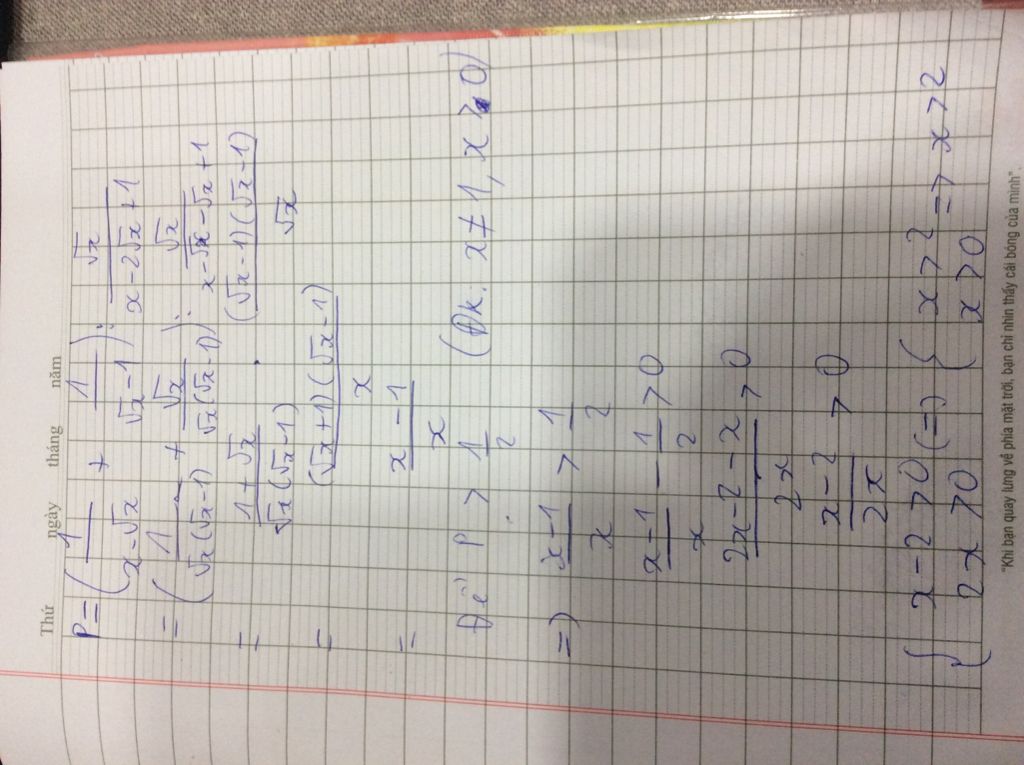 Thứ ngày tháng năm
P = (1/(x-√x) + 1/(√x-1)) : √x/(x-2√x+1)
= (1/(√x(√x-1)) + √x/(√x(√x-1))) : √x/(x-√x-√x+1)
= (1+√x)/(√x(√x-1)) . ((√x-1)(√x-1))/√x
= ((√x+1)(√x-1))/x
= (x-1)/x
Để P > 1/2 (Đk. x≠1, x>0)
=) (x-1)/x > 1/2
(x-1)/x - 1/2 > 0
(2x-2-x)/2x > 0
(x-2)/2x > 0
{ x-2>0 (=) { x>2 => x>2
{ 2x>0 { x>0
"Khi bạn quay lưng về phía mặt trời, bạn chỉ nhìn thấy cái bóng của mình".